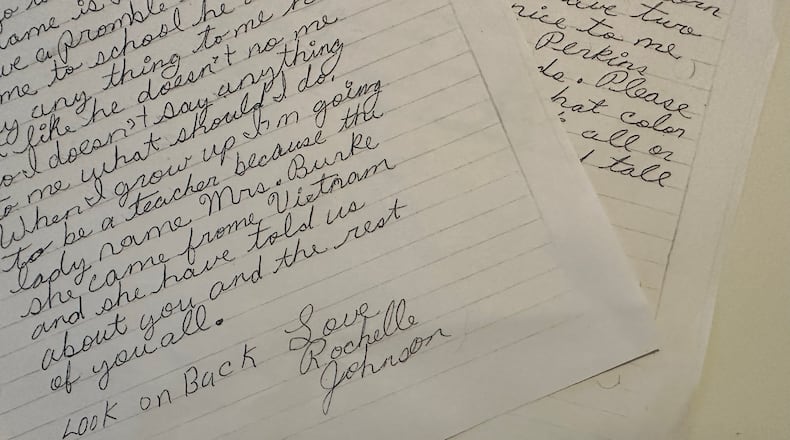 ame is
ve a promble
me to school he
y any thing to me
like he doesn't no me
so I doesn't say anything
to me what should I do.
When I grow up I'm going
to be a teacher because the
lady name Mrs. Burke
she came frome Vietnam
and she have told us
about you and the rest
of you all.
Look on Back Love
Rochelle
Johnson
ave two
nice to me
Perkins
ds. Please
hat color
all or
tall